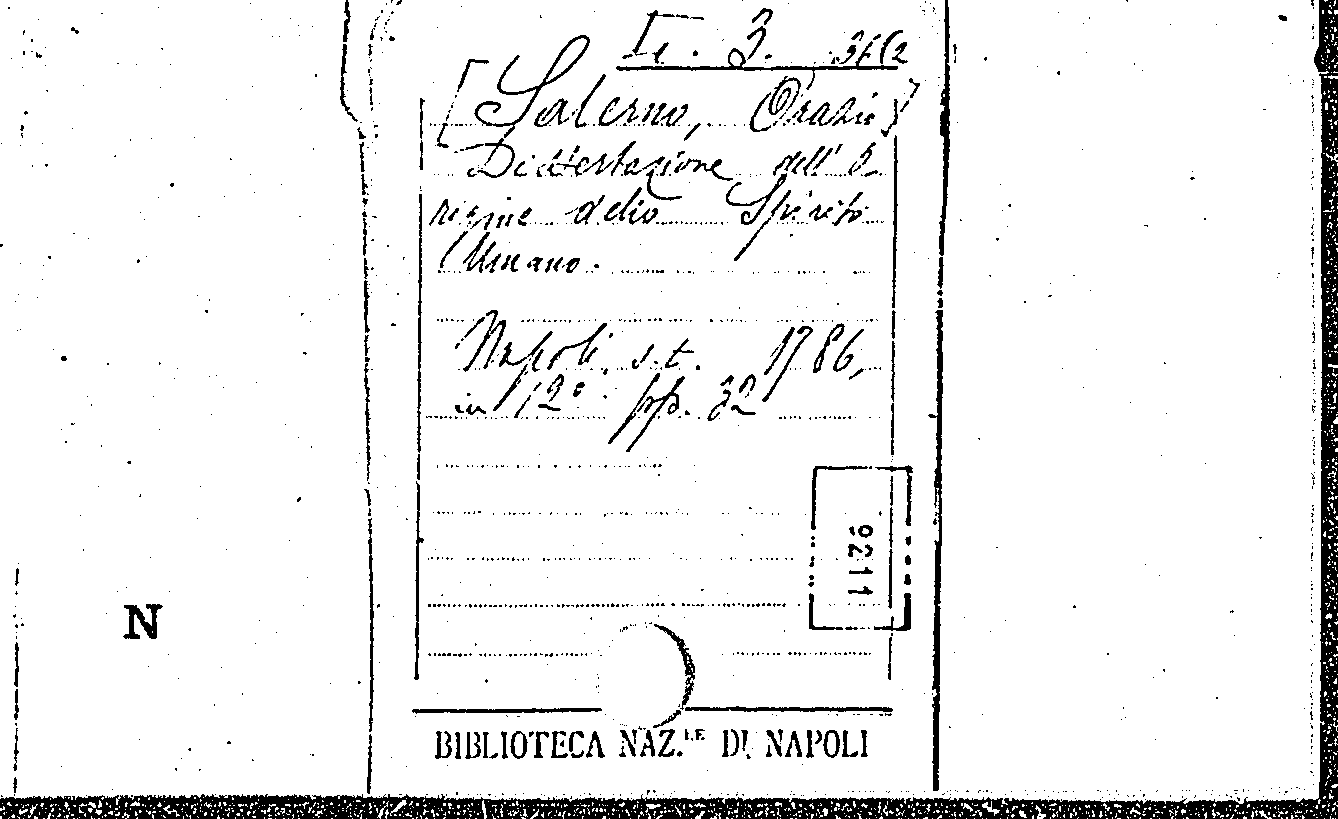 3.
[Salerno, Orazio]
Dissertazione dell' O
rigine dello Spirito
Umano.
Napoli, s.t. 1786,
in 12° pp. 32
9211
N
BIBLIOTECA NAZ.LE DI NAPOLI